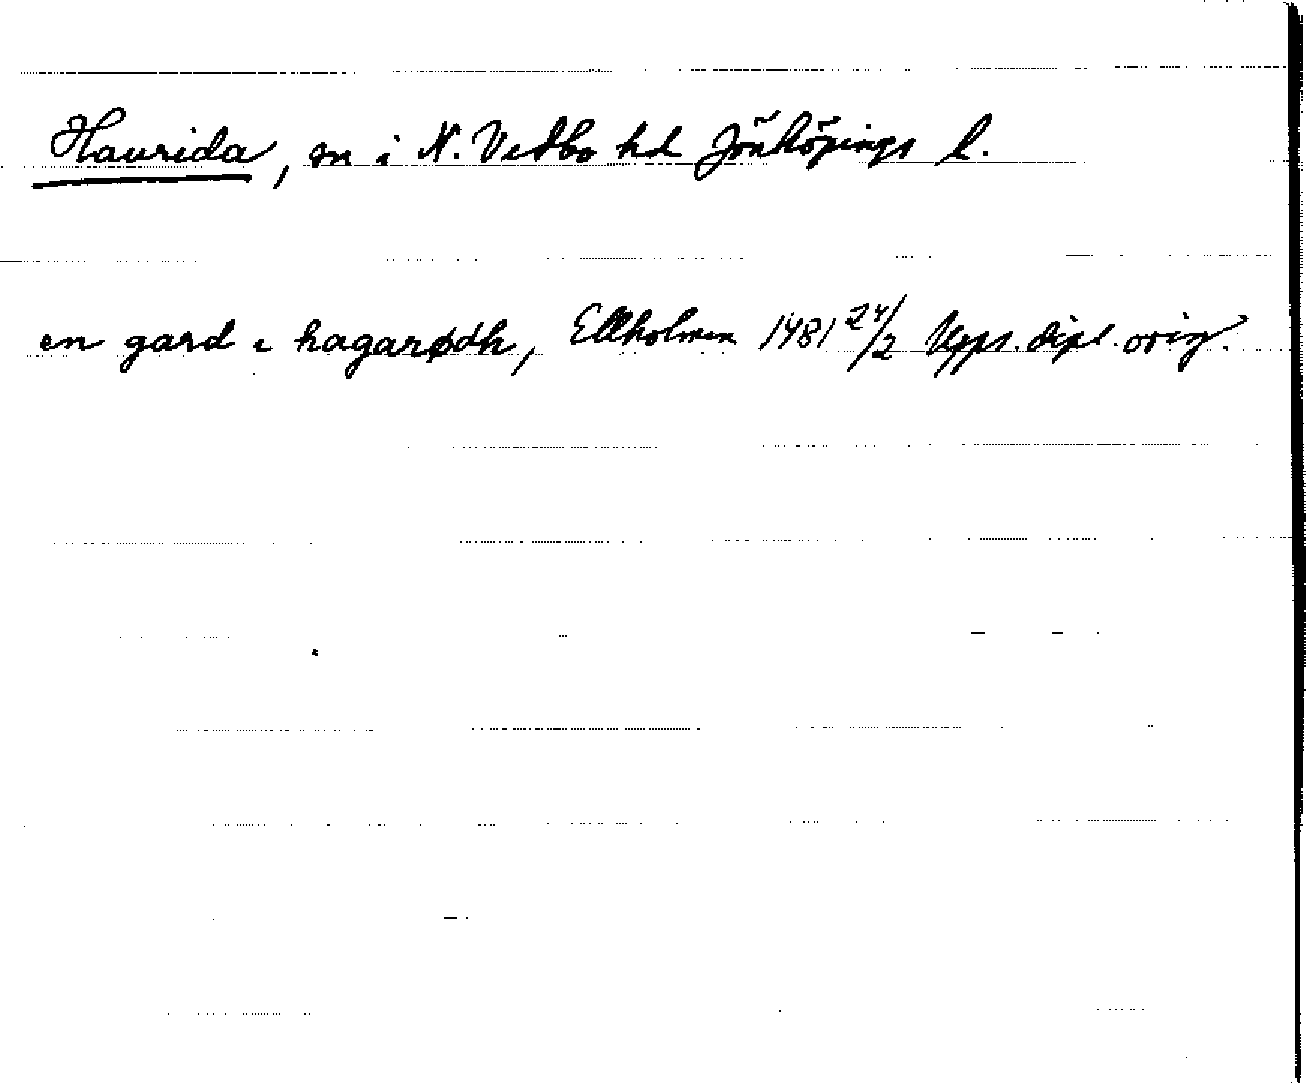 Haurida, sn i N. Vedbo hd Jönköpings l.
en gard i hagarødh, Ekholmen 1481 24/2 Upps. dipl. orig.